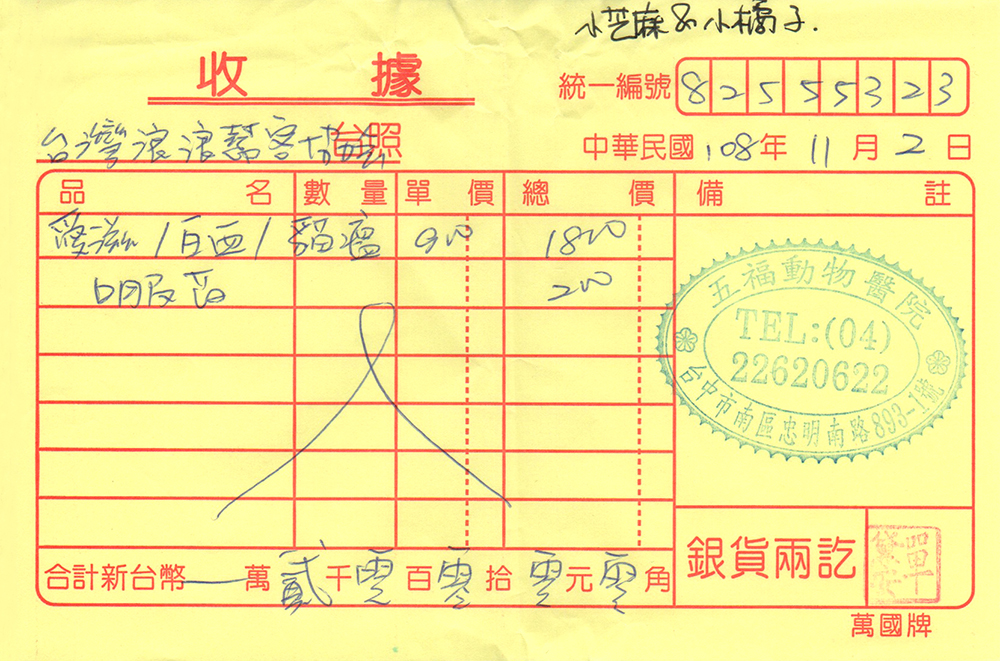 小芝麻&小橘子.
收據
統一編號 82555323
台灣浪浪幫客協會 台照
中華民國108年11月2日
品名 數量 單價 總價 備註
愛滋/白血/貓瘟 900 1800
眼反齒 200
五福動物醫院
TEL:(04)
22620622
台中市南區忠明南路893-1號
合計新台幣 一萬貳千零百零拾零元零角
銀貨兩訖
萬國牌